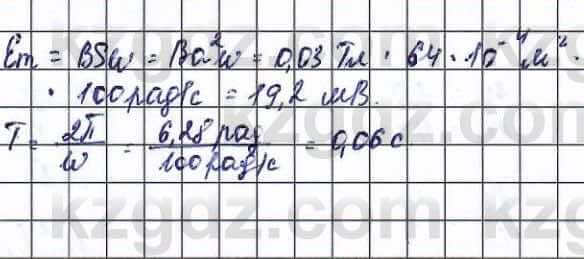 Em = BSω = Ba²ω = 0,03 Тл · 64 · 10⁻⁴ м² ·
· 100 рад/с = 19,2 мВ.
T = 2π/ω = 6,28 рад/100 рад/с = 0,06 с
kzgdz.com kzgdz.com
kzgdz.com kzgdz.com